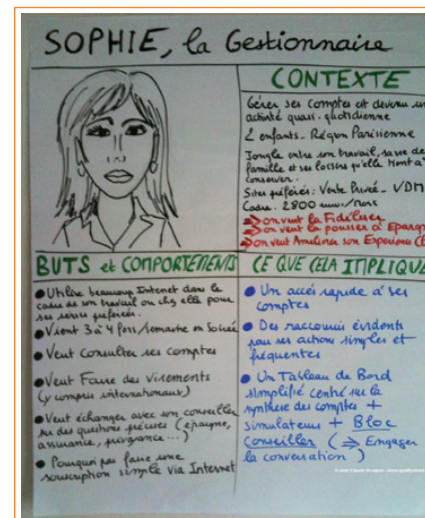 SOPHIE, la Gestionnaire
CONTEXTE
Gérer ses comptes est devenu une
activité quasi-quotidienne
2 enfants - Région Parisienne
Jongle entre son travail, sa vie de
famille et ses loisirs qu'elle tient à
conserver.
Sites préférés : Vente Privée - VDM
Cadre. 2800 euros/mois
=> on veut la Fidéliser
=> on veut la pousser à Epargner
=> on veut Améliorer son Expérience
BUTS et COMPORTEMENTS
● Utilise beaucoup Internet dans le
cadre de son travail ou chez elle pour
ses sites préférés.
● Vient 3 à 4 fois/semaine en Soirée
● Veut Consulter ses comptes
● Veut Faire des virements
(y compris internationaux)
● Veut échanger avec son conseiller
sur des questions précises (épargne,
assurance, prévoyance...)
● Pourquoi pas faire une
souscription simple via Internet
CE QUE CELA IMPLIQUE
● Un accès rapide à ses
comptes
● Des raccourcis évidents
pour ses actions simples et
fréquentes
● Un Tableau de Bord
simplifié centré sur la
synthèse des comptes +
simulateurs + Bloc
conseiller (=> Engager
la conversation)